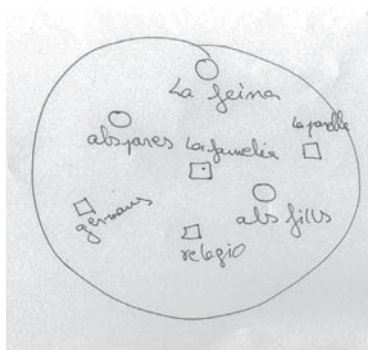 La feina
La parella
als pares
La familia
germans
als fills
relagio